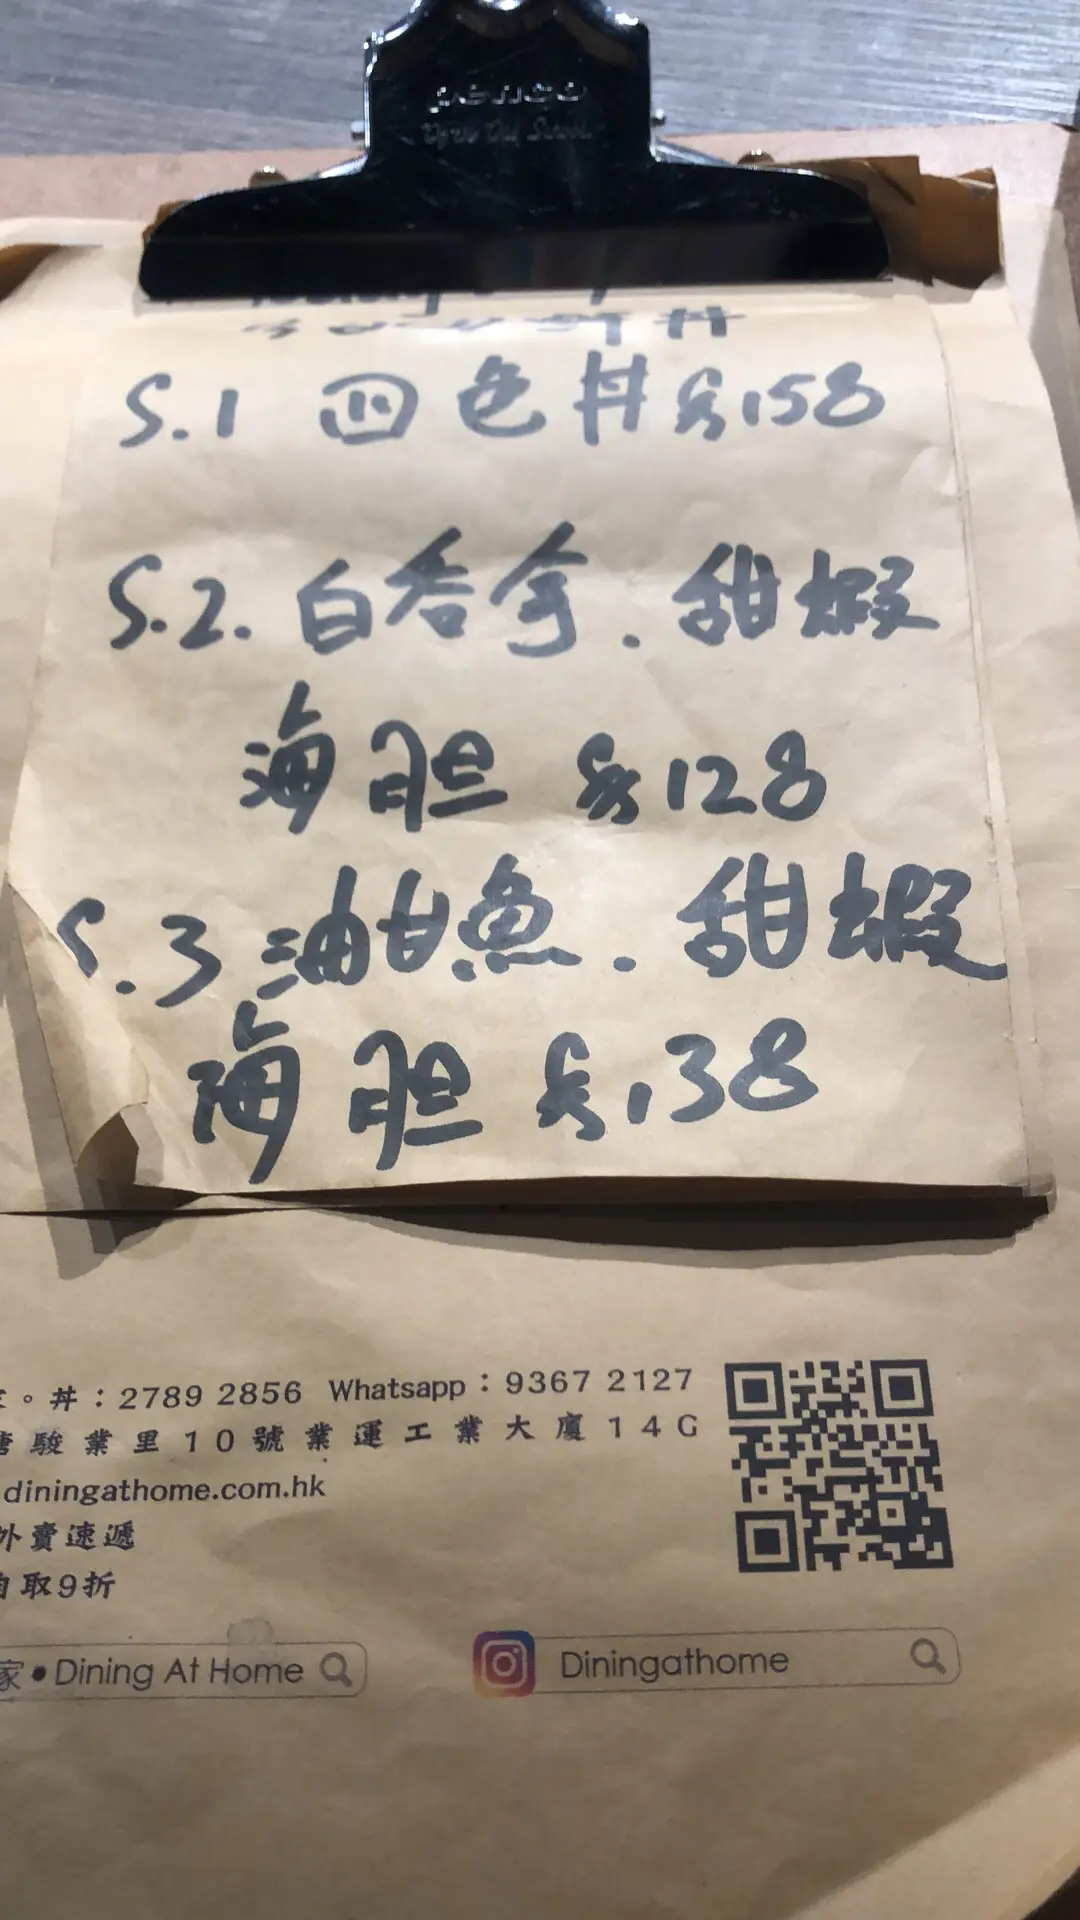 penco
S.1 四色丼 $158
S.2. 白吞拿.甜蝦
海胆 $128
S.3 油甘魚.甜蝦
海胆 $138
。丼：2789 2856 Whatsapp：9367 2127
駿業里10號業運工業大廈14G
diningathome.com.hk
外賣速遞
取9折
家•Dining At Home
Diningathome